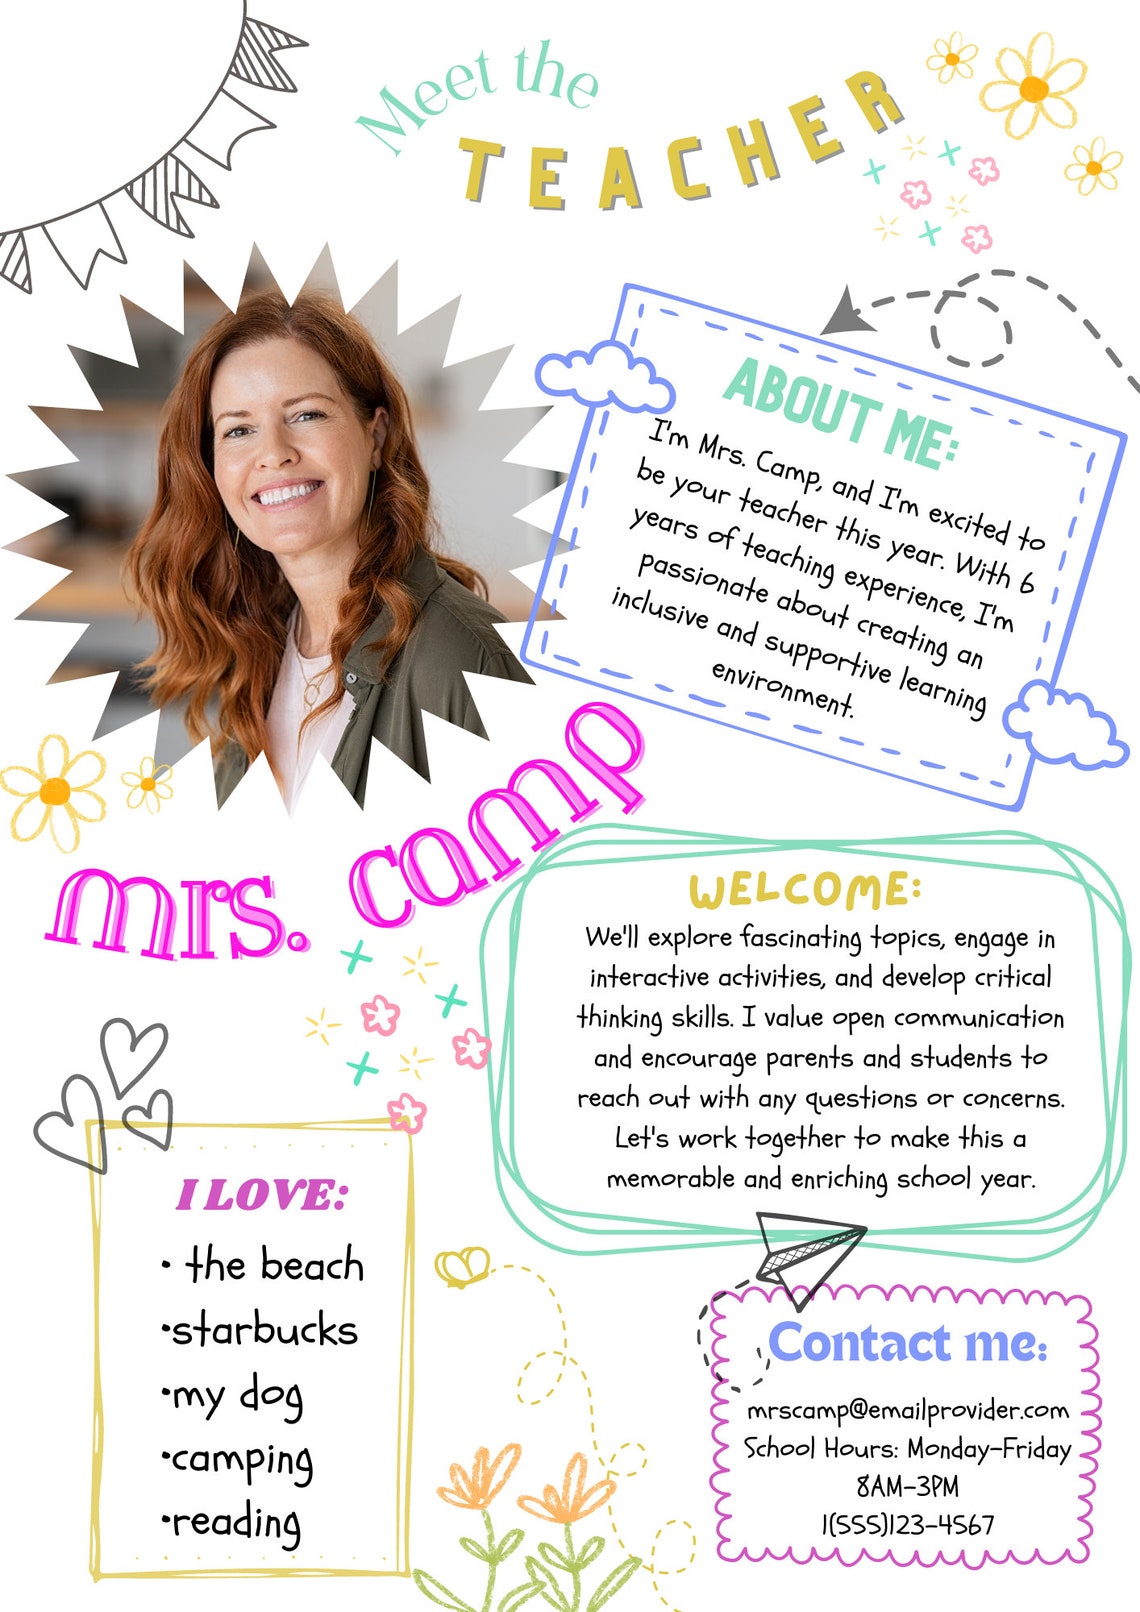 Meet the
TEACHER
ABOUT ME:
I'm Mrs. Camp, and I'm excited to
be your teacher this year. With 6
years of teaching experience, I'm
passionate about creating an
inclusive and supportive learning
environment.
mrs. camp
WELCOME:
We'll explore fascinating topics, engage in
interactive activities, and develop critical
thinking skills. I value open communication
and encourage parents and students to
reach out with any questions or concerns.
Let's work together to make this a
memorable and enriching school year.
I LOVE:
• the beach
•starbucks
•my dog
•camping
•reading
Contact me:
mrscamp@emailprovider.com
School Hours: Monday-Friday
8AM-3PM
1(555)123-4567